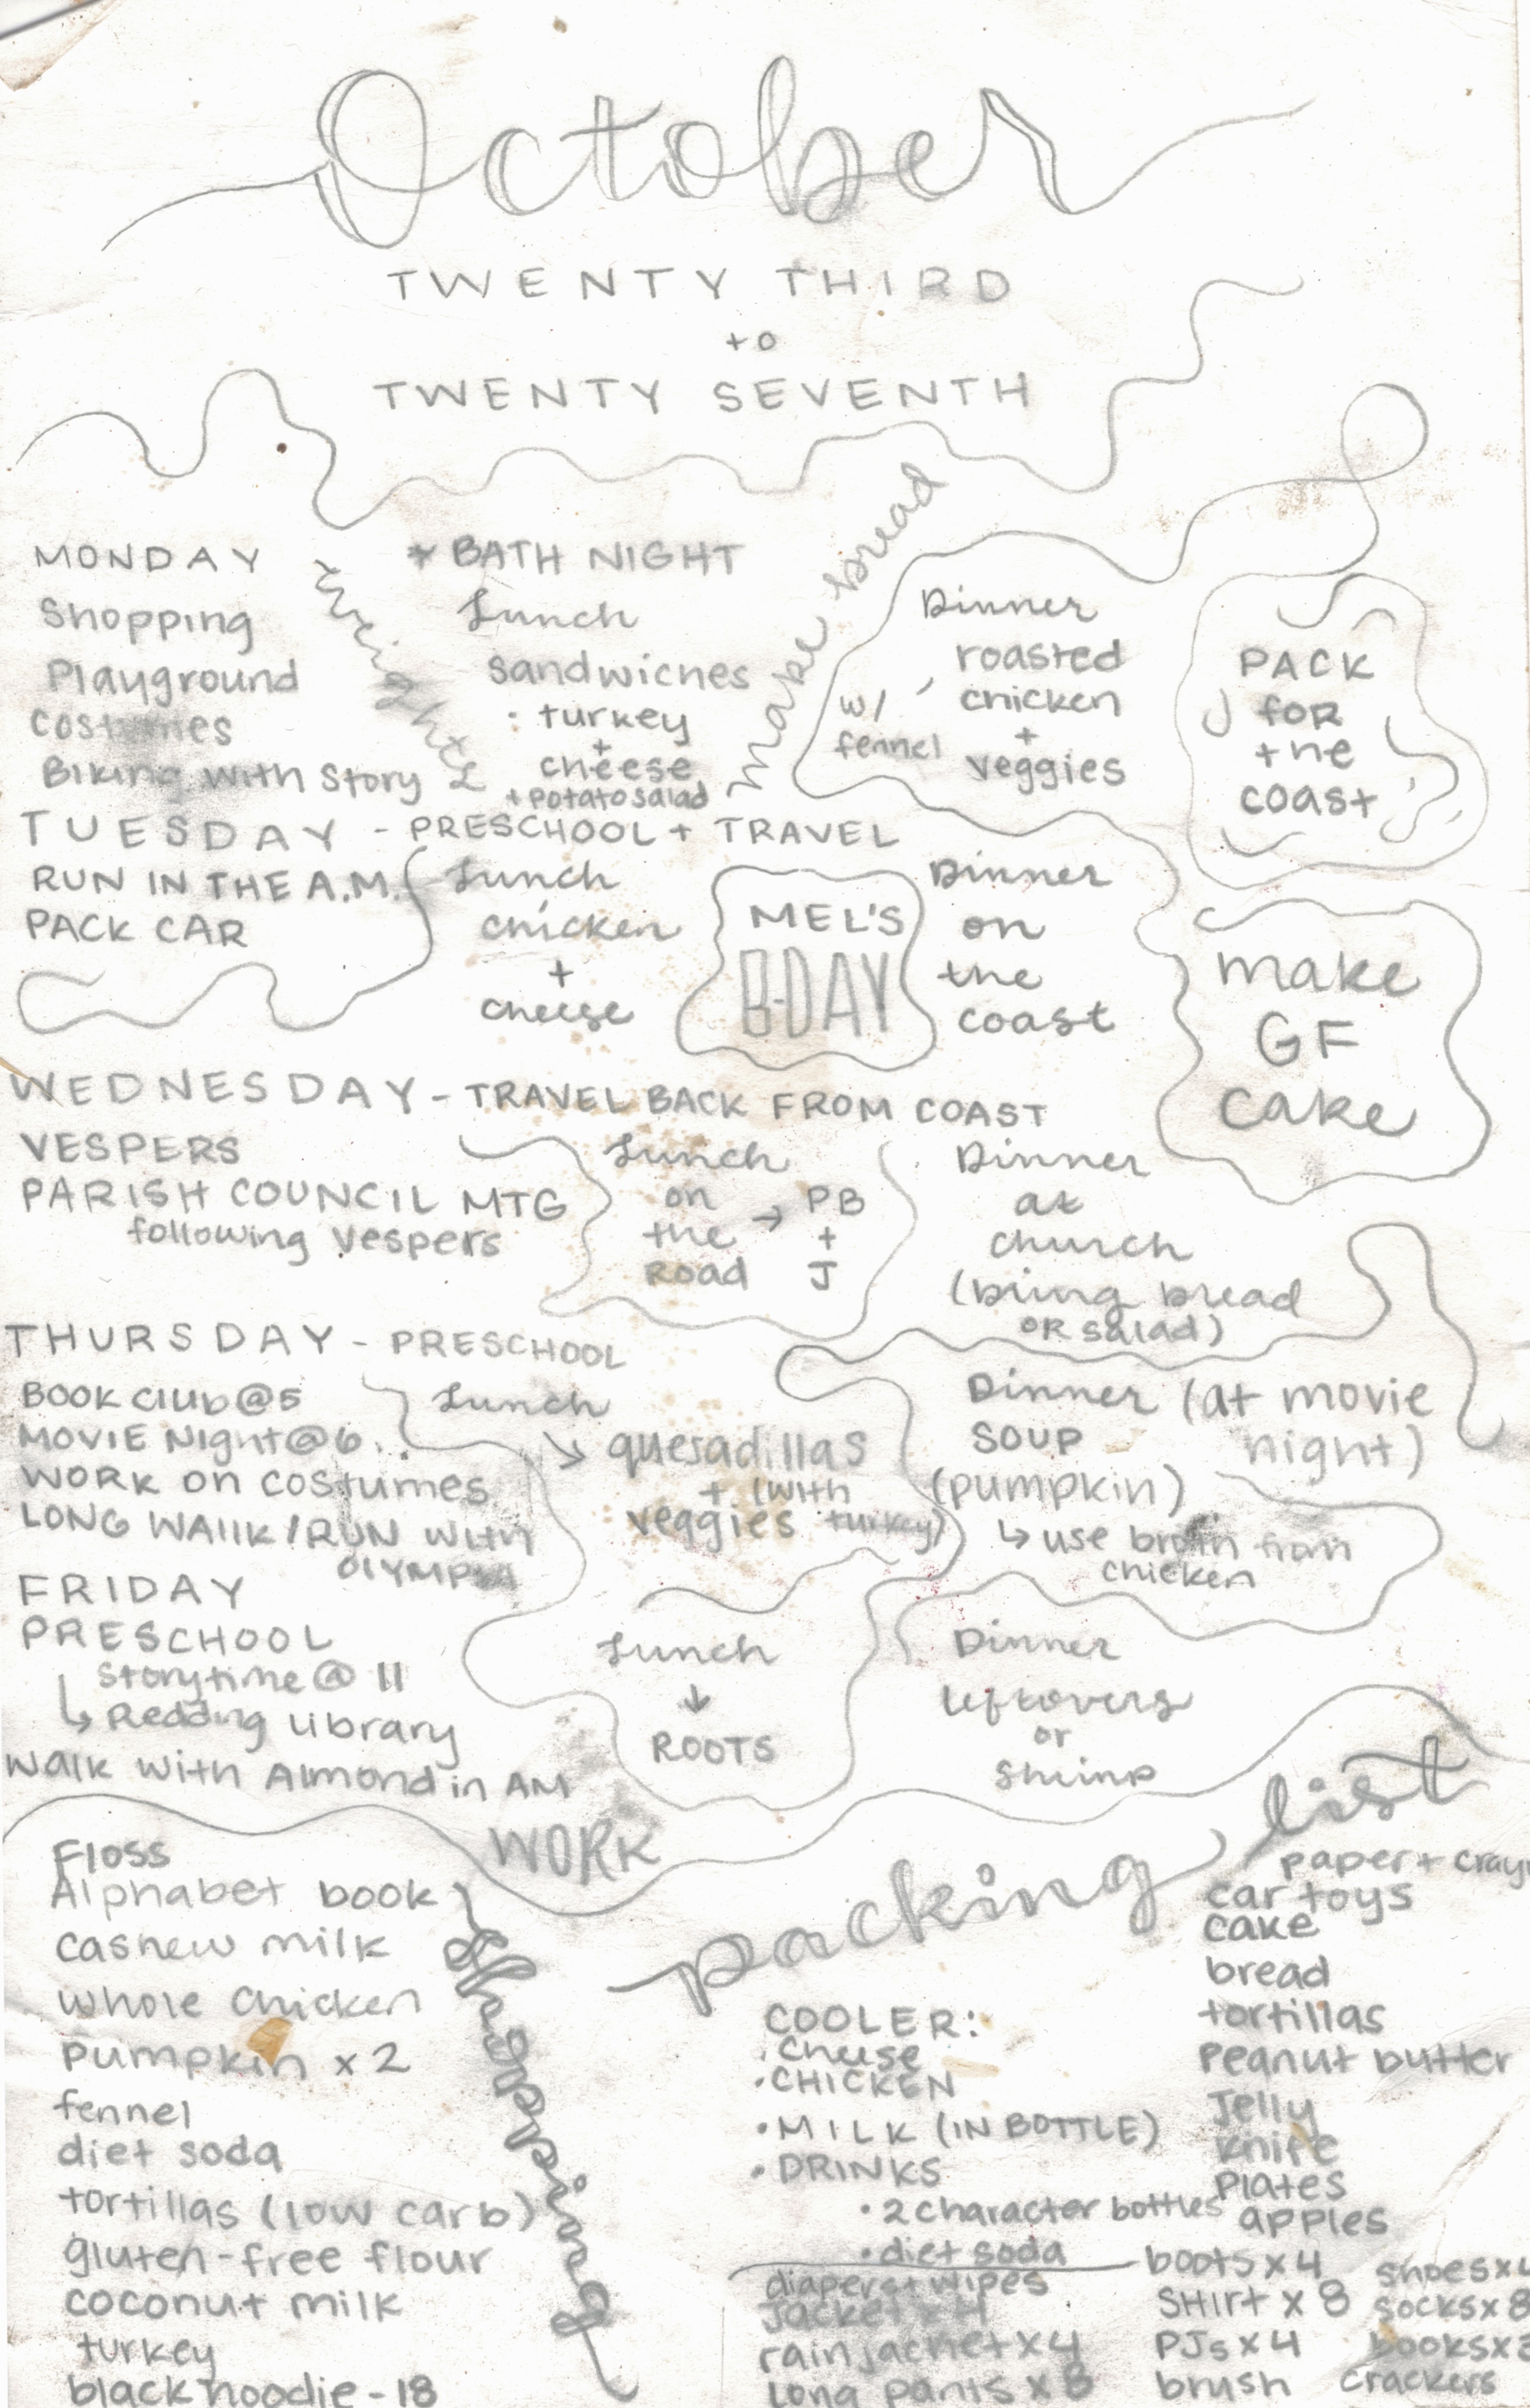 October
TWENTY THIRD
to
TWENTY SEVENTH
MONDAY
Shopping
Playground
Costumes
Biking with Story
weights
* BATH NIGHT
Lunch
sandwiches
• turkey
+
cheese
+ potato salad
make bread
Dinner
roasted
chicken
+
veggies
w/
fennel
PACK
for
the
coast
TUESDAY - PRESCHOOL + TRAVEL
RUN IN THE A.M.
PACK CAR
Lunch
chicken
+
cheese
MEL'S
B-DAY
Dinner
on
the
coast
make
GF
cake
WEDNESDAY - TRAVEL BACK FROM COAST
VESPERS
PARISH COUNCIL MTG
following vespers
Lunch
on
the
Road
→ PB
+
J
Dinner
at
church
(bring bread
OR salad)
THURSDAY - PRESCHOOL
BOOK Club @ 5
MOVIE Night @ 6
WORK on costumes
LONG WAllk / RUN with
OLYMPIA
Lunch
↘ quesadillas
+ (with
veggies turkey)
Dinner (at movie
night)
SOUP
(pumpkin)
↳ use broth from
chicken
FRIDAY
PRESCHOOL
Storytime @ 11
↳ Redding Library
Walk with Almond in AM
Lunch
↓
ROOTS
Dinner
leftovers
or
Shrimp
WORK
Shopping
Floss
Alphabet book
cashew milk
whole chicken
pumpkin x 2
fennel
diet soda
tortillas (low carb)
gluten-free flour
coconut milk
turkey
black hoodie - 18
packing list
COOLER:
• Cheese
• CHICKEN
• MILK (IN BOTTLE)
• DRINKS
• 2 character bottles
• diet soda
diapers + wipes
Jacket x 4
rain jacket x 4
Long pants x 8
paper +
car toys
cake
bread
tortillas
Peanut butter
Jelly
knife
Plates
apples
boots x 4
SHIRT x 8
PJs x 4
brush
shoes x
socks x 8
books x
crackers